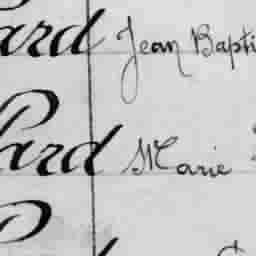 ard Jean Bapti
Pard Marie